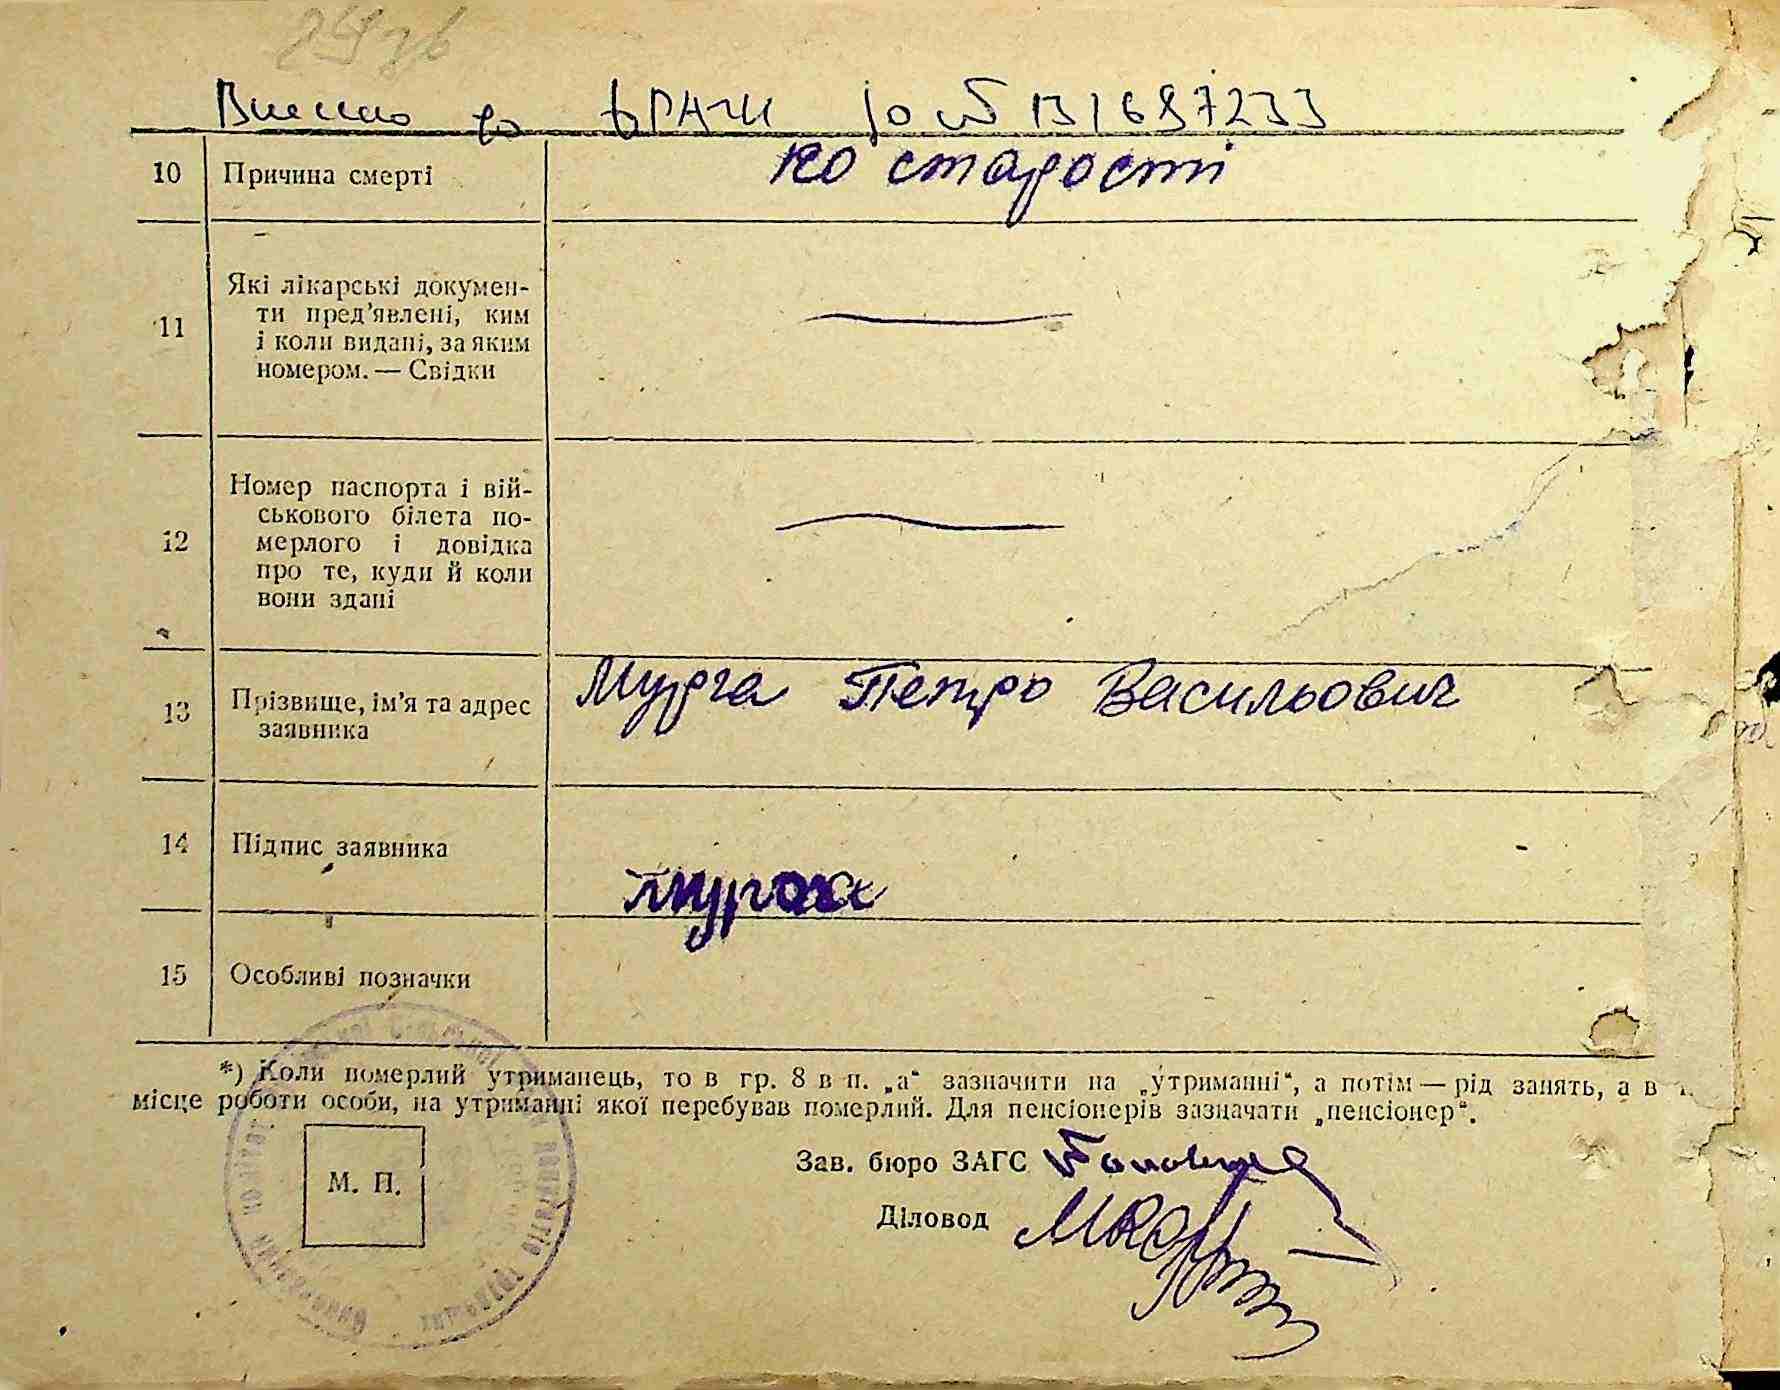 Внесено до ДРАЦСГ 131697233
10 Причина смерті по старості
11 Які лікарські докумен-
ти пред'явлені, ким
і коли видані, за яким
номером. — Свідки
12 Номер паспорта і вій-
ськового білета по-
мерлого і довідка
про те, куди й коли
вони здані
13 Прізвище, ім'я та адрес Мурга Петро Васильович
заявника
14 Підпис заявника Мурга
15 Особливі позначки
*) Коли померлий утриманець, то в гр. 8 в п. „а“ зазначити на „утриманні“, а потім — рід занять, а в
місце роботи особи, на утриманні якої перебував померлий. Для пенсіонерів зазначати „пенсіонер“.
М. П.
Зав. бюро ЗАГС
Діловод